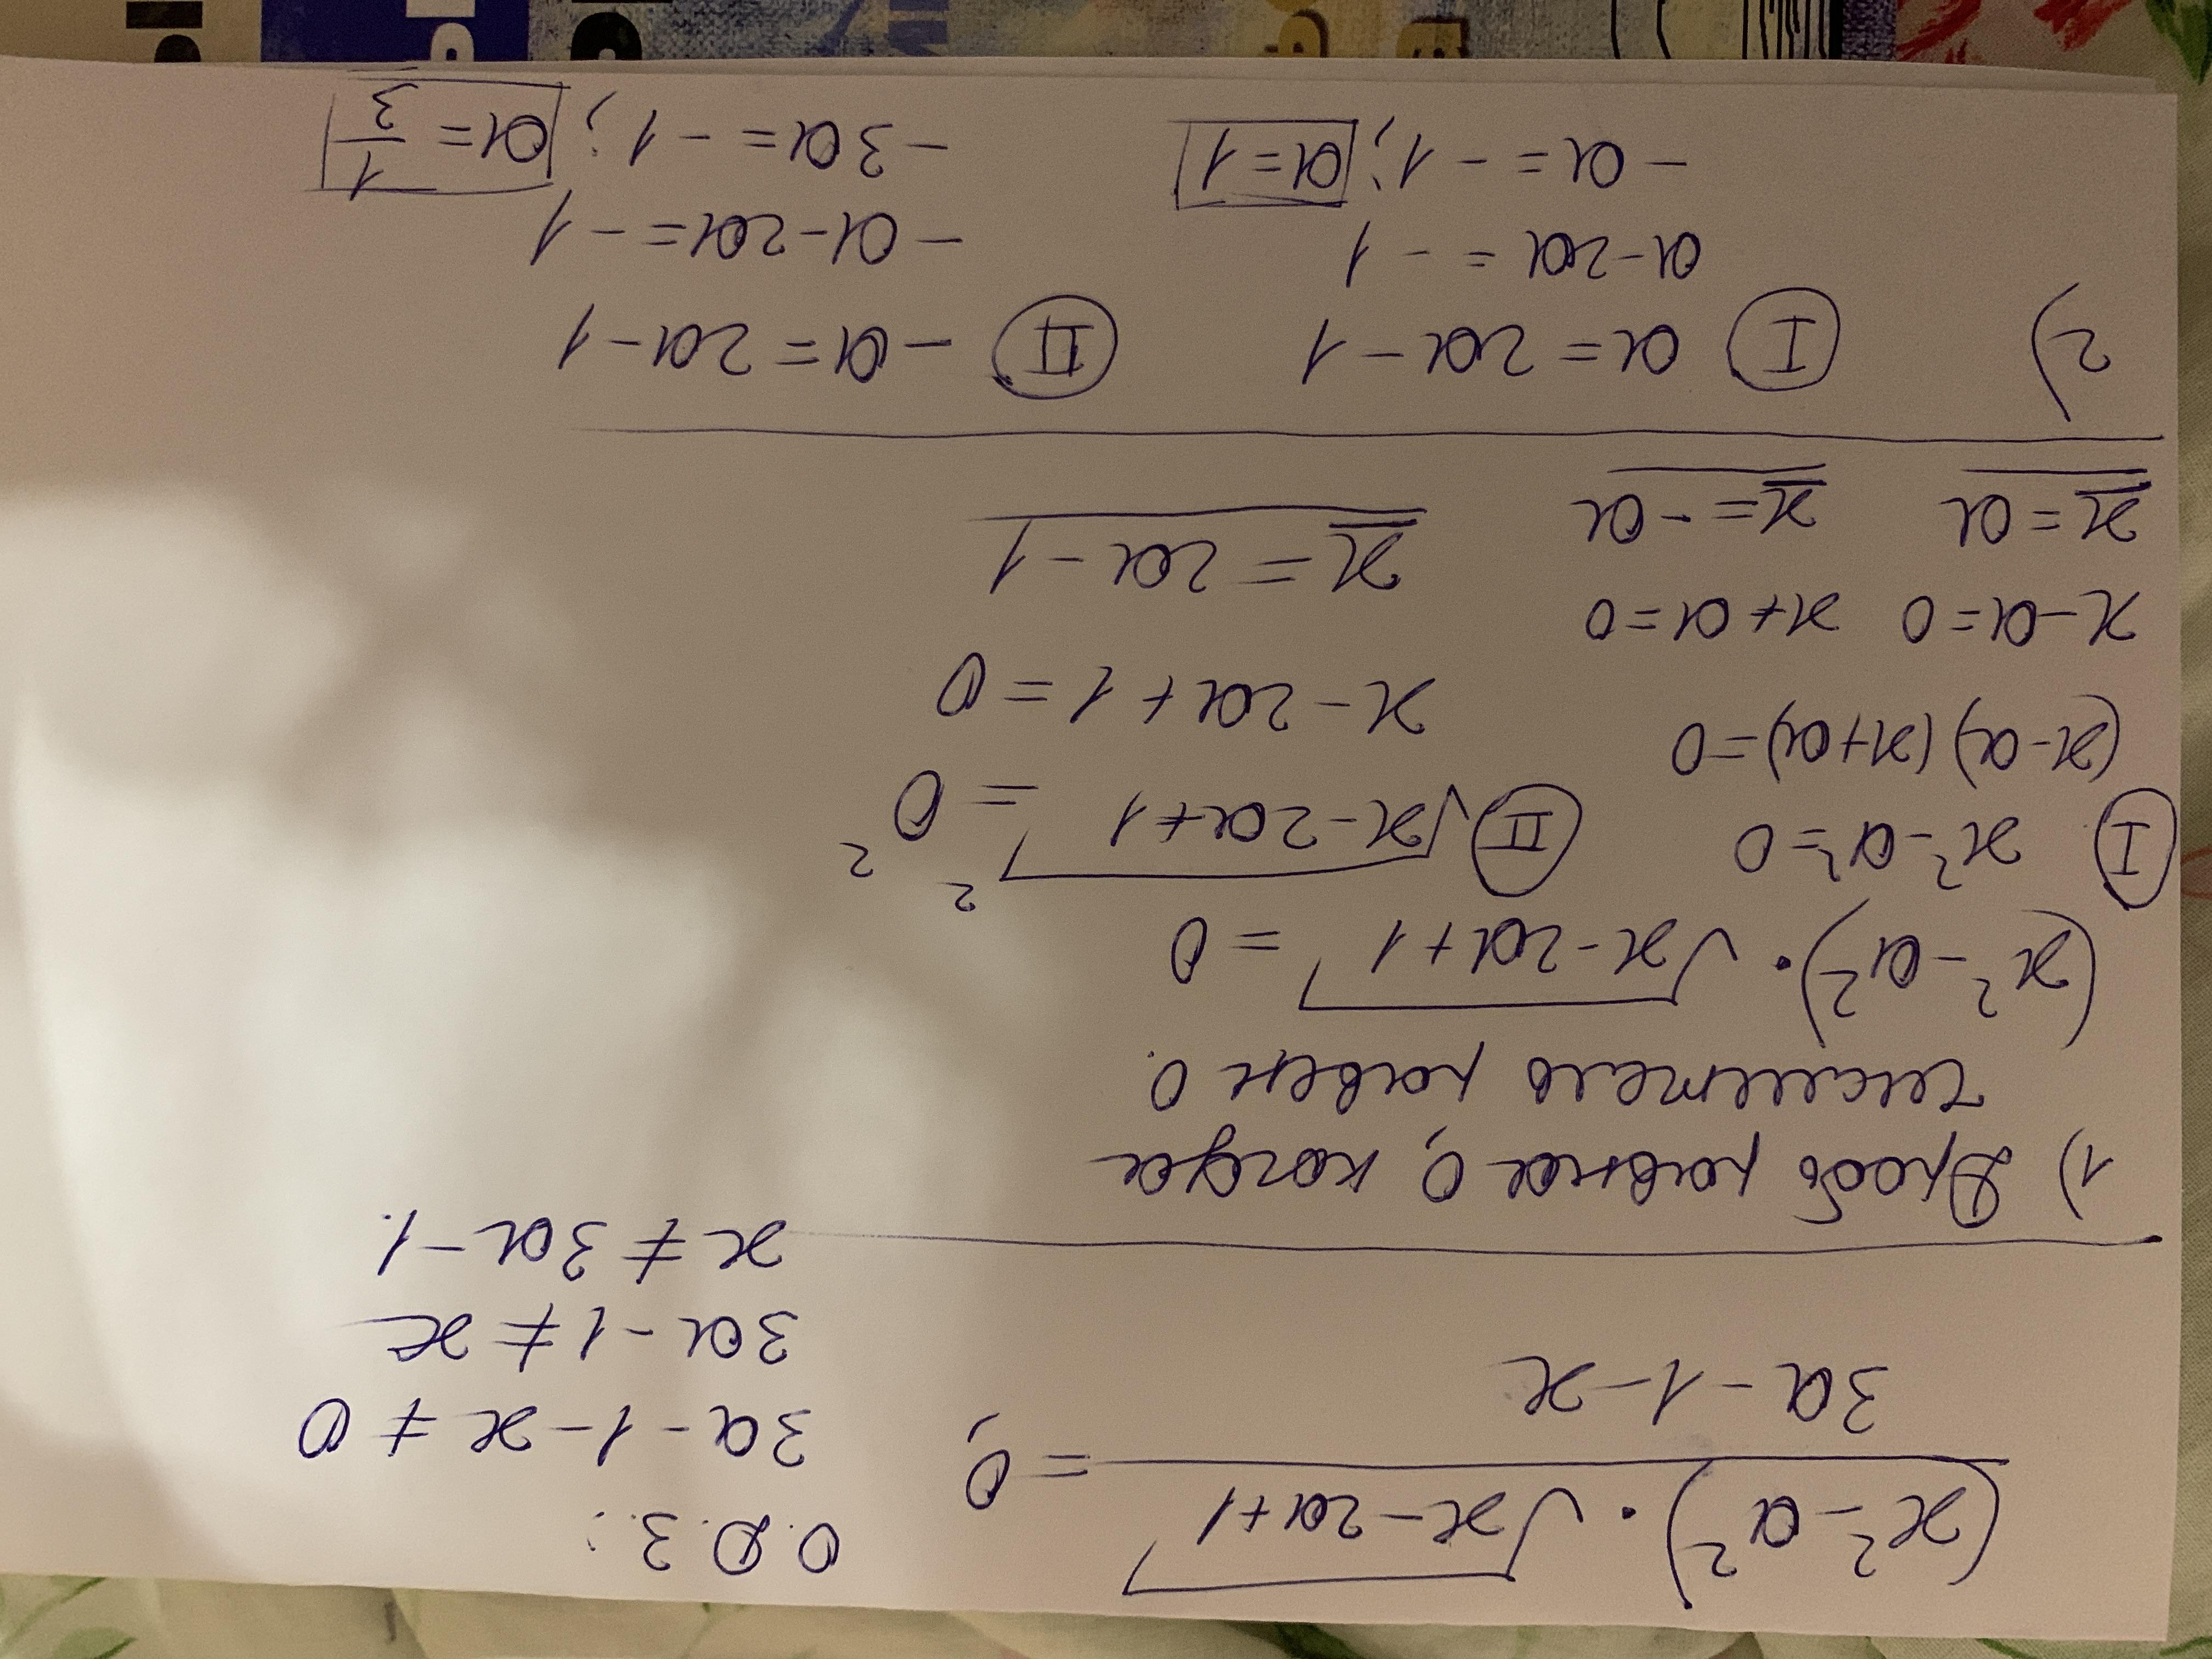 (x² - a²) · √x - 2a + 1 = 0,
3a - 1 - x
О.Д.З.:
3a - 1 - x ≠ 0
3a - 1 ≠ x
x ≠ 3a - 1.
1) Дробь равна 0, когда
числитель равен 0.
(x² - a²) · √x - 2a + 1 = 0
I x² - a² = 0
(x - a) (x + a) = 0
x - a = 0 x + a = 0
x = a x = - a
II √x - 2a + 1 ² = 0²
x - 2a + 1 = 0
x = 2a - 1
2) I a = 2a - 1
a - 2a = - 1
- a = - 1; a = 1
II - a = 2a - 1
- a - 2a = - 1
- 3a = - 1; a = 1/3